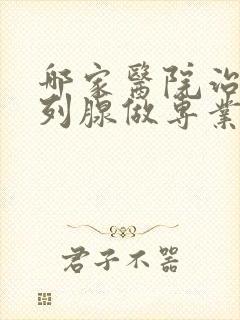 哪家醫院治
列腺做專業
君子不器